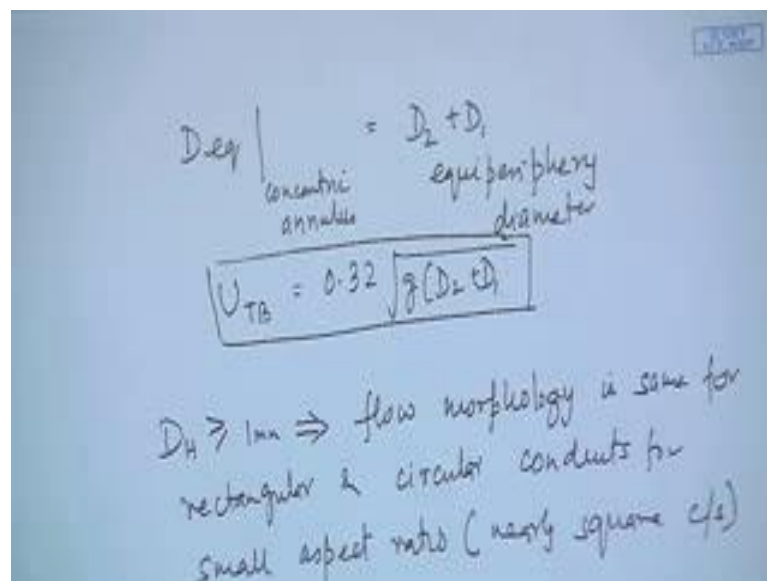 Deq | = D₂ + D₁
concentric annulus
equiperiphery diameter
U_TB = 0.32 √g(D₂+D₁
D_H ≥ 1mm ⇒ flow morphology is same for
rectangular & circular conduits for
small aspect ratio (nearly square c/s)